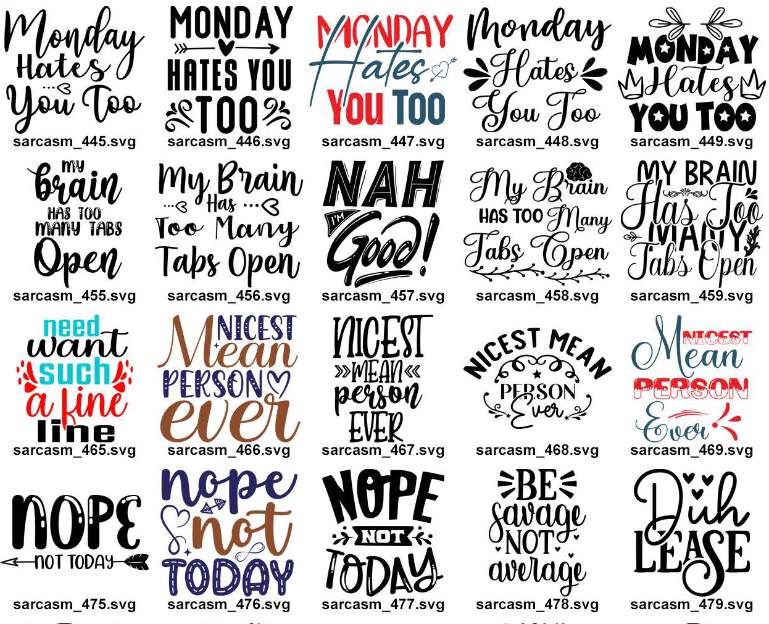 Monday
Hates
You Too
sarcasm_445.svg
MONDAY
HATES YOU
TOO
sarcasm_446.svg
MONDAY
Hates
YOU TOO
sarcasm_447.svg
Monday
Hates
You Too
sarcasm_448.svg
MONDAY
Hates
YOU TOO
sarcasm_449.svg
my
brain
HAS TOO
MANY TABS
Open
sarcasm_455.svg
My Brain
Has
Too Many
Tabs Open
sarcasm_456.svg
NAH
I'M
Good!
sarcasm_457.svg
My Brain
HAS TOO Many
Tabs Open
sarcasm_458.svg
MY BRAIN
Has Too
MANY
Tabs Open
sarcasm_459.svg
need
want
such
a fine
line
sarcasm_465.svg
NICEST
Mean
PERSON
ever
sarcasm_466.svg
NICEST
MEAN
person
EVER
sarcasm_467.svg
NICEST MEAN
PERSON
Ever
sarcasm_468.svg
NICEST
Mean
PERSON
Ever
sarcasm_469.svg
NOPE
NOT TODAY
sarcasm_475.svg
nope
not
TODAY
sarcasm_476.svg
NOPE
NOT
TODAY
sarcasm_477.svg
BE
savage
NOT
average
sarcasm_478.svg
Duh
LEASE
sarcasm_479.svg